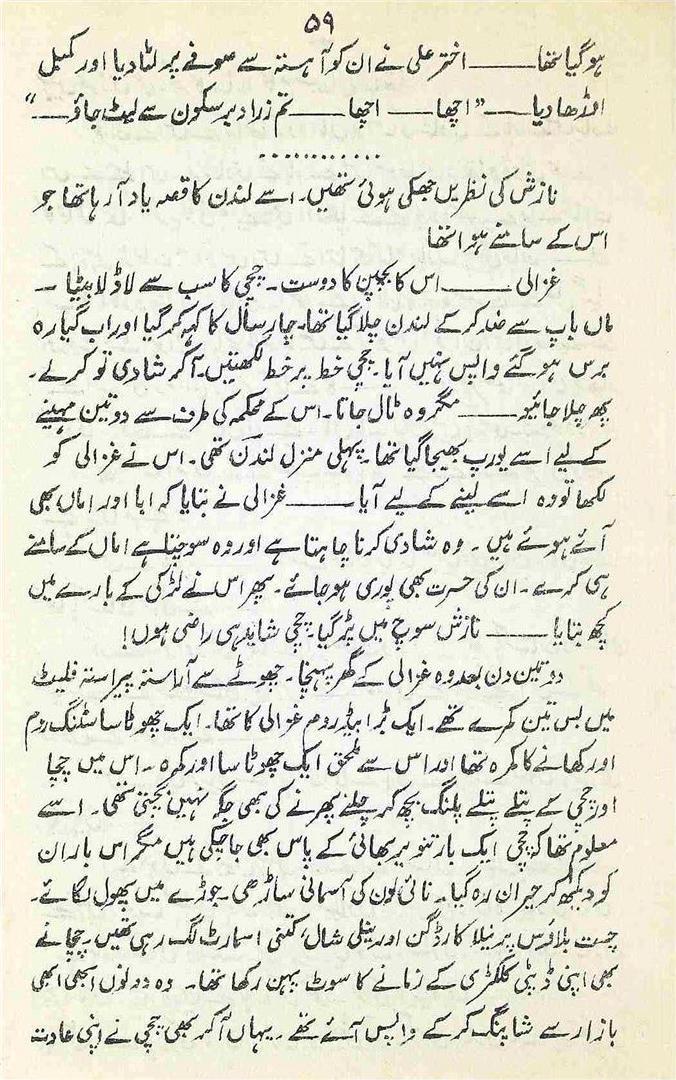 ۵۹
ہوگیا تھا ــــــ اختر علی نے ان کو آہستہ سے صوفے پر لٹا دیا اور کمبل
اڑھا دیا ــــ "اچھا ــــ اچھا ــــ تم زرا دیر سکون سے لیٹ جاؤ ــــ"
............
نازش کی نظریں جھکی ہوئی تھیں۔ اسے لندن کا قصہ یاد آرہا تھا جو
اس کے سامنے ہوا تھا
غزالی ــــــ اس کا بچپن کا دوست۔ چچی کا سب سے لاڈلا بیٹا ــ
ماں باپ سے ضد کرکے لندن چلا گیا تھا۔ چار سال کا کہہ کر گیا اور اب گیارہ
برس ہو گئے واپس نہیں آیا۔ چچی خط پر خط لکھتیں۔ آکر شادی تو کرلے۔
پھر چلا جائیو ــــــ مگر وہ ٹال جاتا۔ اس کے محکمہ کی طرف سے دو تین مہینے
کے لیے اسے یورپ بھیجا گیا تھا۔ پہلی منزل لندن تھی۔ اس نے غزالی کو
لکھا تو وہ اسے لینے کے لیے آیا ــــــ غزالی نے بتایا کہ ابا اور اماں بھی
آئے ہوئے ہیں۔ وہ شادی کرنا چاہتا ہے اور وہ سوچتا ہے اماں کے سامنے
ہی کرے۔ ان کی حسرت بھی پوری ہو جائے۔ پھر اس نے لڑکی کے بارے میں
کچھ بتایا ــــــ نازش سوچ میں پڑ گیا۔ چچی شاید ہی راضی ہوں!
دو تین دن بعد وہ غزالی کے گھر پہنچا۔ چھوٹے سے آراستہ پیراستہ فلیٹ
میں بس تین کمرے تھے۔ ایک بڑا بیڈ روم غزالی کا تھا۔ ایک چھوٹا سا سٹنگ روم
اور کھانے کا کمرہ تھا اور اس سے ملحق ایک چھوٹا سا اور کمرہ۔ اس میں چچا
اور چچی کے پتلے پتلے پلنگ بچھ کر چلنے پھرنے کی بھی جگہ نہیں بچتی تھی۔ اسے
معلوم تھا کہ چچی ایک بار تنویر بھائی کے پاس بھی جاچکی ہیں مگر اس بار ان
کو دیکھ کر حیران رہ گیا۔ نائی لون کی آسمانی ساڑھی۔ جوڑے میں پھول لگائے۔
چست بلاؤس پر نیلا کارڈگن اور نیلی شال، کتنی اسمارٹ لگ رہی تھیں۔ چچا نے
بھی اپنی ڈپٹی کلکٹری کے زمانے کا سوٹ پہن رکھا تھا۔ وہ دونوں ابھی ابھی
بازار سے شاپنگ کرکے واپس آئے تھے۔ یہاں آکر بھی چچی نے اپنی عادت